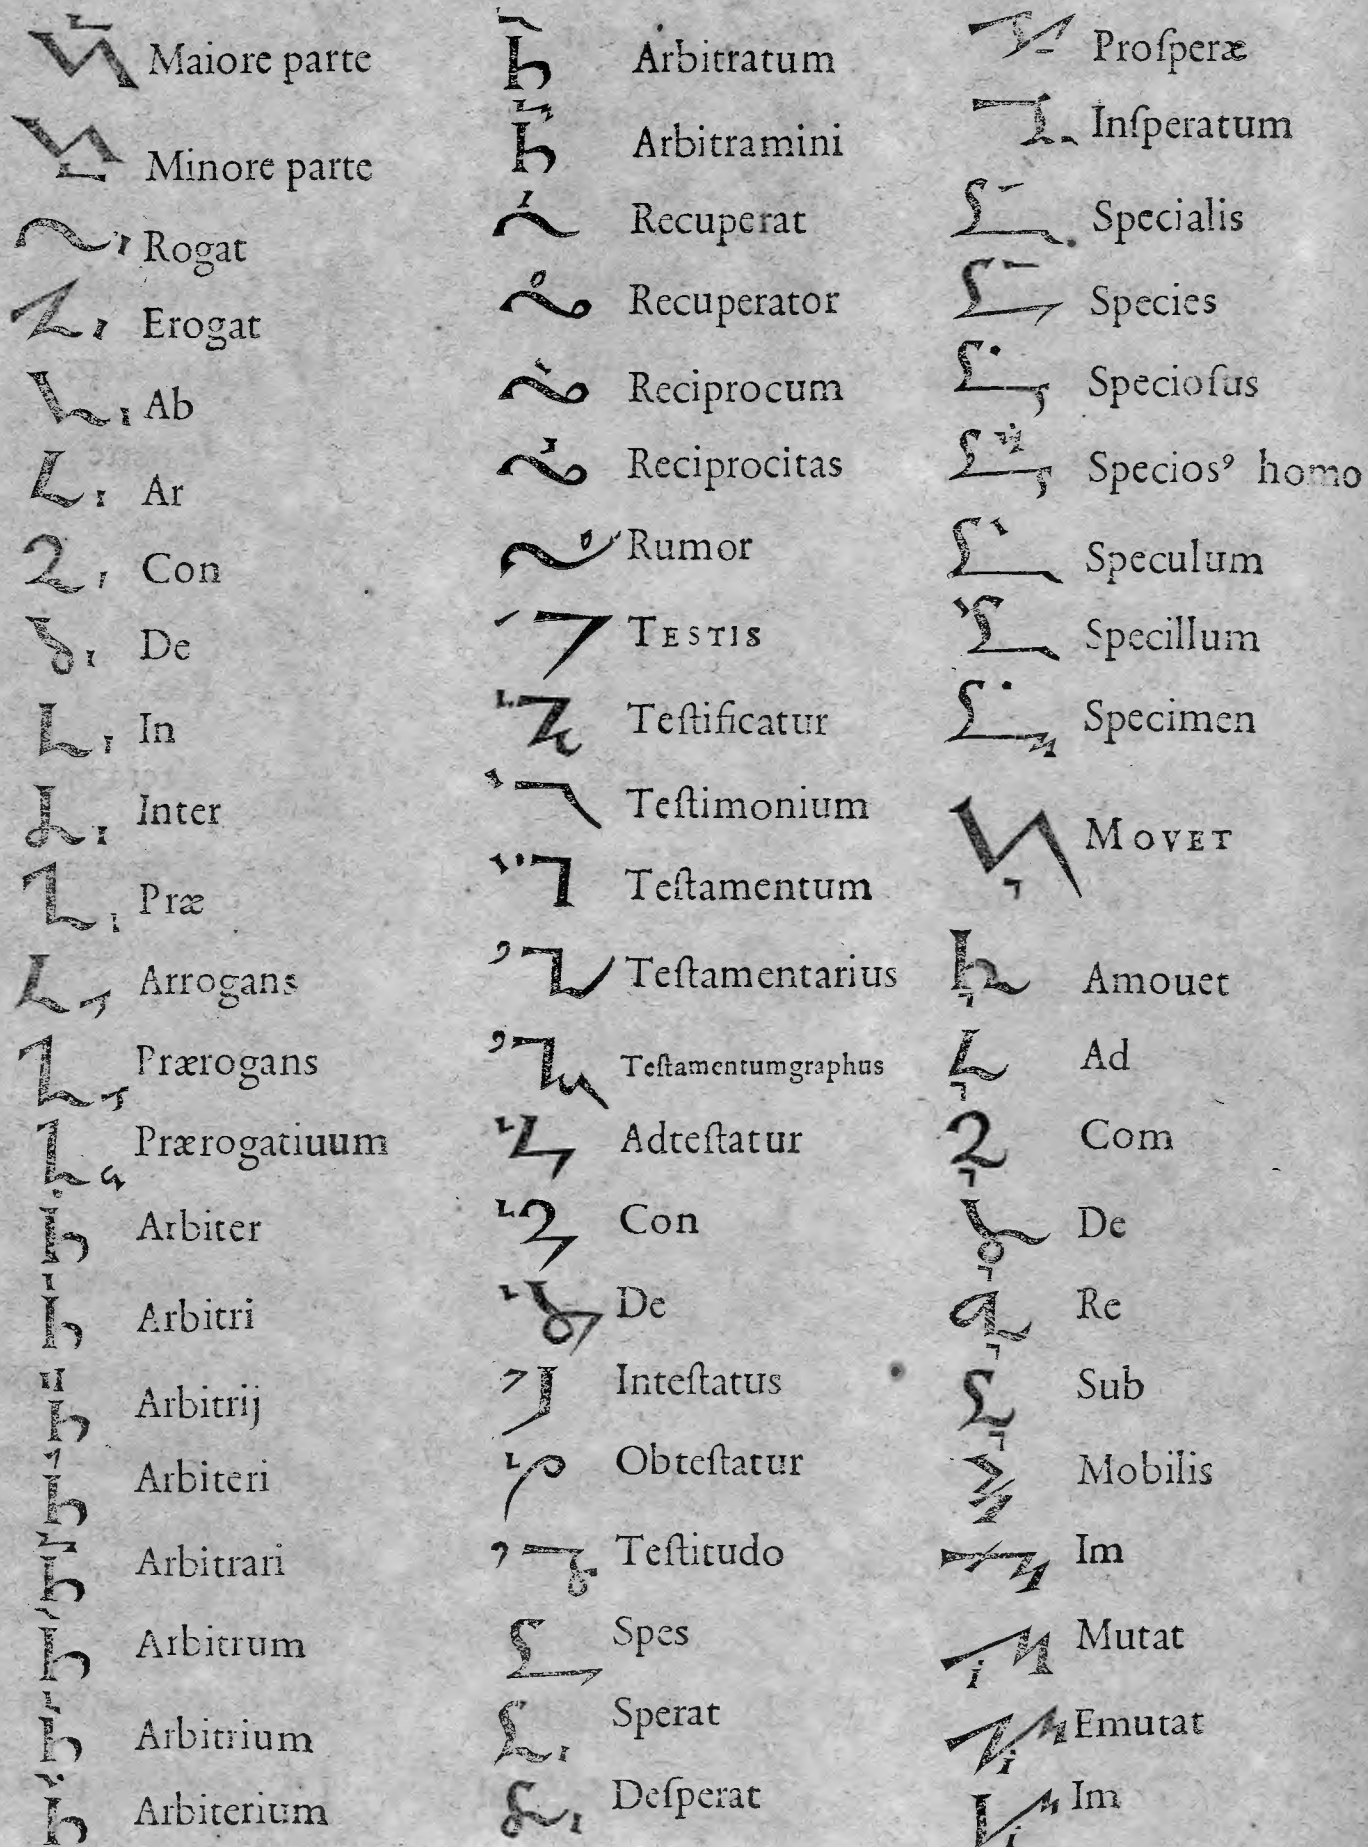 Maiore parte
Minore parte
Rogat
Erogat
Ab
Ar
Con
De
In
Inter
Præ
Arrogans
Prærogans
Prærogatiuum
Arbiter
Arbitri
Arbitrij
Arbiteri
Arbitrari
Arbitrum
Arbitrium
Arbiterium
Arbitratum
Arbitramini
Recuperat
Recuperator
Reciprocum
Reciprocitas
Rumor
TESTIS
Teſtificatur
Teſtimonium
Teſtamentum
Teſtamentarius
Teſtamentumgraphus
Adteſtatur
Con
De
Inteſtatus
Obteſtatur
Teſtitudo
Spes
Sperat
Deſperat
Proſperæ
Inſperatum
Specialis
Species
Specioſus
Speciosꝰ homo
Speculum
Specillum
Specimen
MOVET
Amouet
Ad
Com
De
Re
Sub
Mobilis
Im
Mutat
Emutat
Im